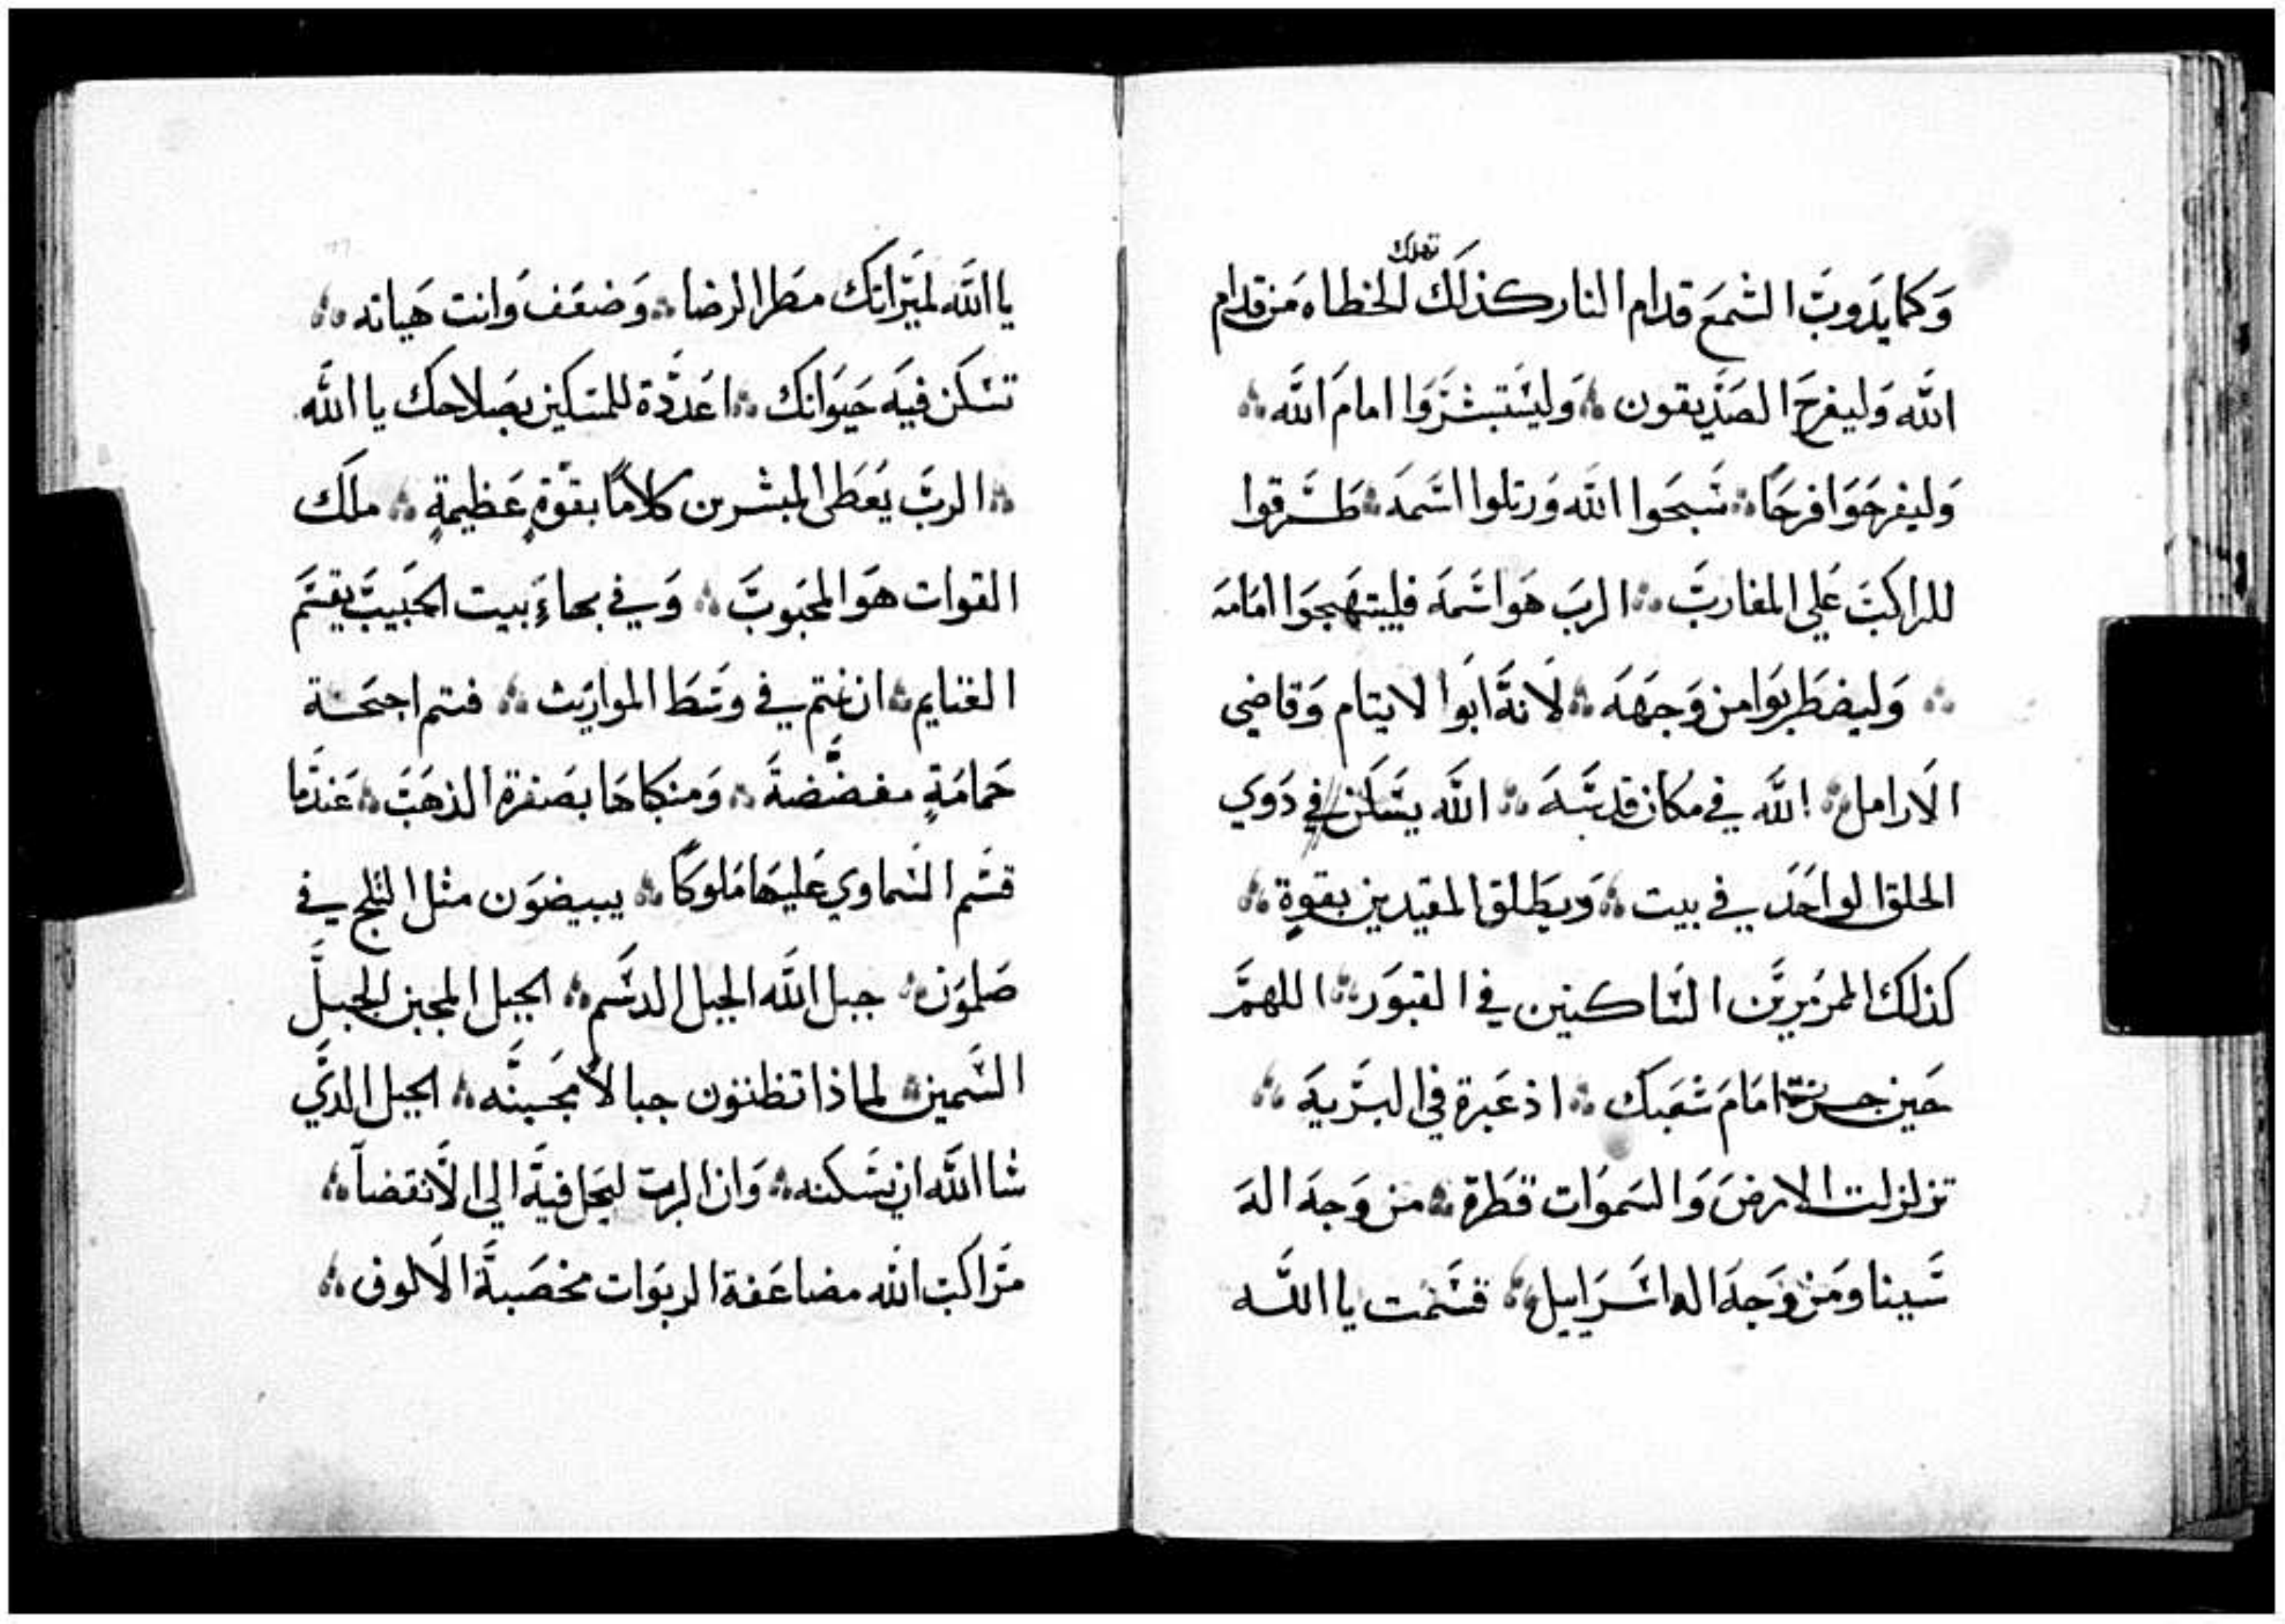 تهلك
وَكما يَدوبَ الشمعَ قدام النار كذلَك الخطاه مَن قدام
اللَّه وَليفرحَ الصَدّيقون ؞ وَليسَتبشرَوا امامَ اللَّه ؞
وَليفرحَوَا فرحًا ؞ سَبحَوا اللَّه وَرتلوا اسَمهَ ؞ طَرقوا
للراكبَ عَلى المغاربَ ؞ الربَ هَو اسَمهَ فليبتهجوَا امَامهَ
؞ وَليضطَربوَا من وَجهَهَ ؞ لَانهَّ ابَوا لايتام وَقاضي
الَارامل ؞ اللَّه في مكان قدسَهَ ؞ اللَّه يسَكن في دَوي
الخلق الواحَد في بيت ؞ وَيطَلق المقيدين بقوةٍ ؞
كذلَك المرمرين السَاكنين في القبوَر ؞ اللهمَّ
حَين جسرت امَامَ شعَبك ؞ اذ عَبرة في البرَيهَ ؞
تزلزلت الارضَ وَالسَموَات قطَرة ؞ من وَجهَ الهَ
سَينا وَمَن وَجهَ اله اسَرَاييل ؞ قسَمت يا اللَّه
يا اللَّه لميَرَاثك مطَر الرضا ؞ وَضعَف وَانت هَياته ؞
تسَكن فيهَ حيَوَانك ؞ اعَددّة للمسَكين بصَلاحك يا اللَّه
؞ الربَّ يعَطَى المبشرين كلامًا بقوّةٍ عَظيمةٍ ؞ ملَك
القوات هوَ المحَبوبَّ ؞ وَفي بهاءَ بيت الحَبيبَّ يقسَم
الغنايم ؞ ان نمتم في وسَطَ المواريَث ؞ فتم اجنحَة
حَمامَةٍ مفضضّةَ ؞ وَمنكباهَا بصَفرة الذهَبَ ؞ عَندمَا
قسَم السَماوي عَليهَا مَلوكَا ؞ يبيضوَن مثل الثلج في
صَلموَن ؞ جبل اللَّه الجبل الدسَم ؞ الجبل المجبن الجبلَّ
السَمين ؞ لماذا تظنون جبالًا مجَبنَّه ؞ الجبل الدَّي
شا اللَّه ان يسَكنه ؞ وَان الربَ ليَحل فيهَ الي الَانقضاَ ؞
مرَاكبَ اللَّه مضاعَفة الربوَات مخصَبةَ الَالوف ؞